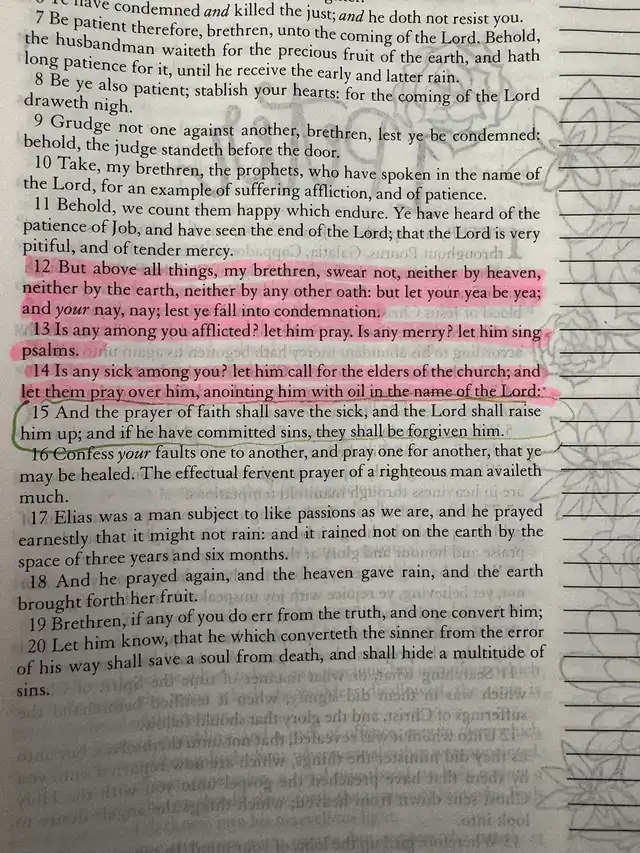 have condemned and killed the just; and he doth not resist you.
7 Be patient therefore, brethren, unto the coming of the Lord. Behold,
the husbandman waiteth for the precious fruit of the earth, and hath
long patience for it, until he receive the early and latter rain.
8 Be ye also patient; stablish your hearts: for the coming of the Lord
draweth nigh.
9 Grudge not one against another, brethren, lest ye be condemned:
behold, the judge standeth before the door.
10 Take, my brethren, the prophets, who have spoken in the name of
the Lord, for an example of suffering affliction, and of patience.
11 Behold, we count them happy which endure. Ye have heard of the
patience of Job, and have seen the end of the Lord; that the Lord is very
pitiful, and of tender mercy.
12 But above all things, my brethren, swear not, neither by heaven,
neither by the earth, neither by any other oath: but let your yea be yea;
and your nay, nay; lest ye fall into condemnation.
13 Is any among you afflicted? let him pray. Is any merry? let him sing
psalms.
14 Is any sick among you? let him call for the elders of the church; and
let them pray over him, anointing him with oil in the name of the Lord:
15 And the prayer of faith shall save the sick, and the Lord shall raise
him up; and if he have committed sins, they shall be forgiven him.
16 Confess your faults one to another, and pray one for another, that ye
may be healed. The effectual fervent prayer of a righteous man availeth
much.
17 Elias was a man subject to like passions as we are, and he prayed
earnestly that it might not rain: and it rained not on the earth by the
space of three years and six months.
18 And he prayed again, and the heaven gave rain, and the earth
brought forth her fruit.
19 Brethren, if any of you do err from the truth, and one convert him;
20 Let him know, that he which converteth the sinner from the error
of his way shall save a soul from death, and shall hide a multitude of
sins.